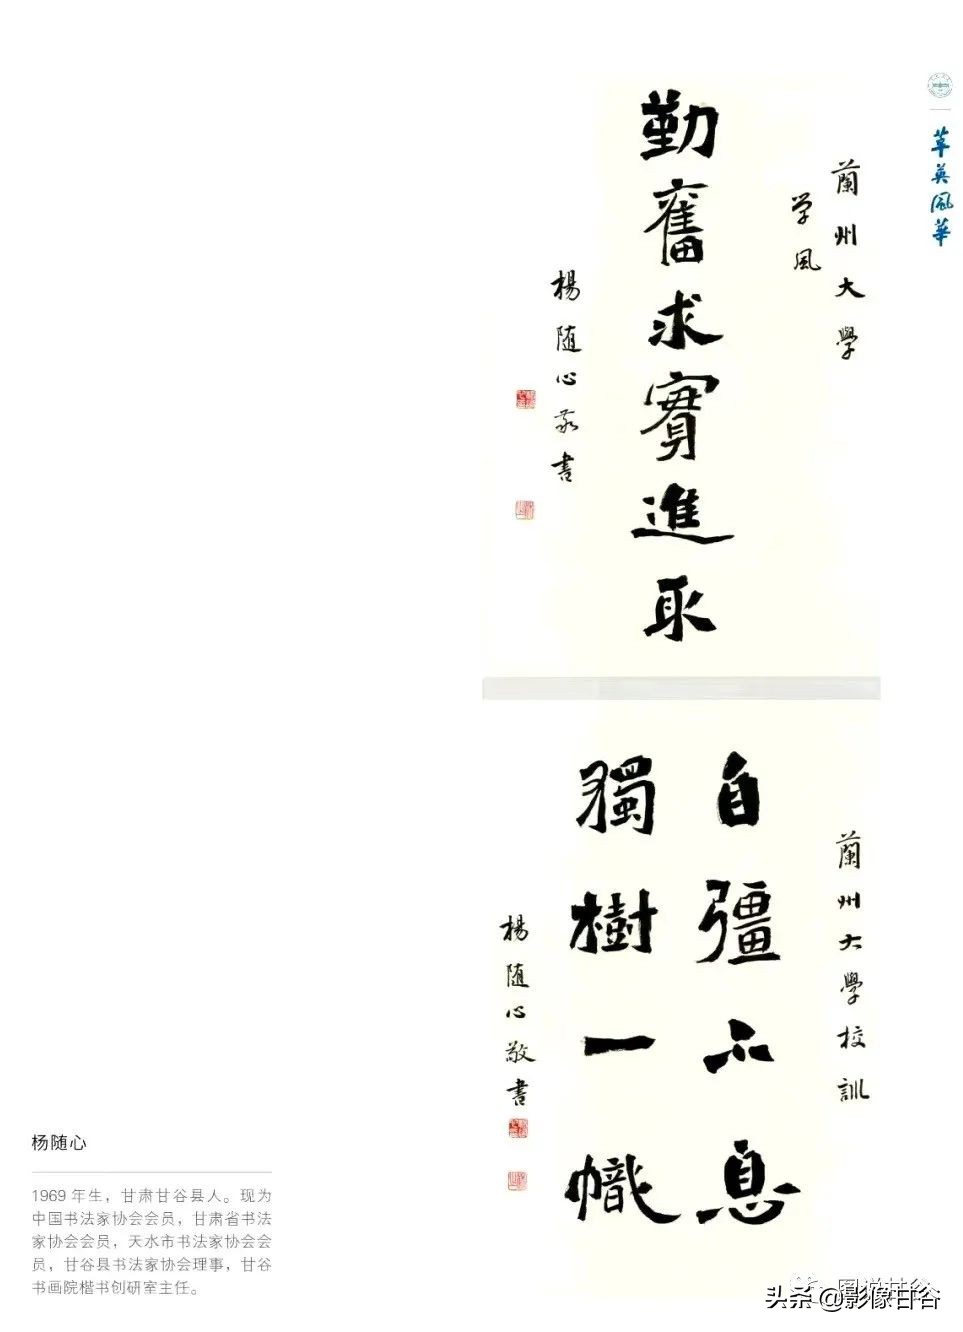 萃英風華
蘭州大學
学風
勤奮求實進取
楊随心敬書
蘭州大學校訓
自彊不息
獨樹一幟
楊随心敬書
杨随心
1969 年生，甘肃甘谷县人。现为
中国书法家协会会员，甘肃省书法
家协会会员，天水市书法家协会会
员，甘谷县书法家协会理事，甘谷
书画院楷书创研室主任。
头条 @影像甘谷